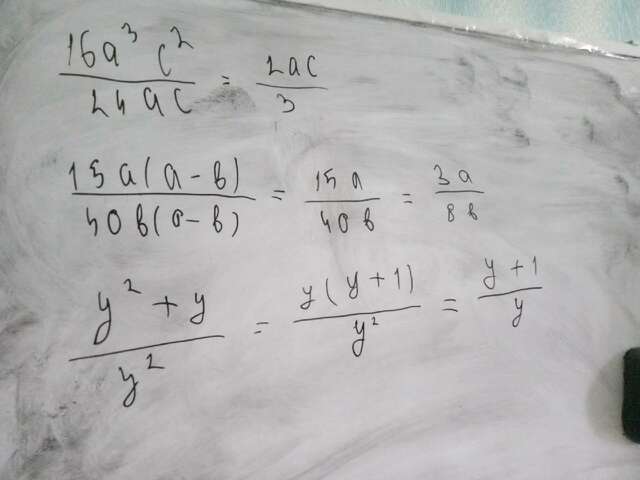 16a³c² / 24ac = 2ac / 3
15a(a-в) / 40в(a-в) = 15a / 40в = 3a / 8в
y² + y / y² = y(y+1) / y² = y+1 / y